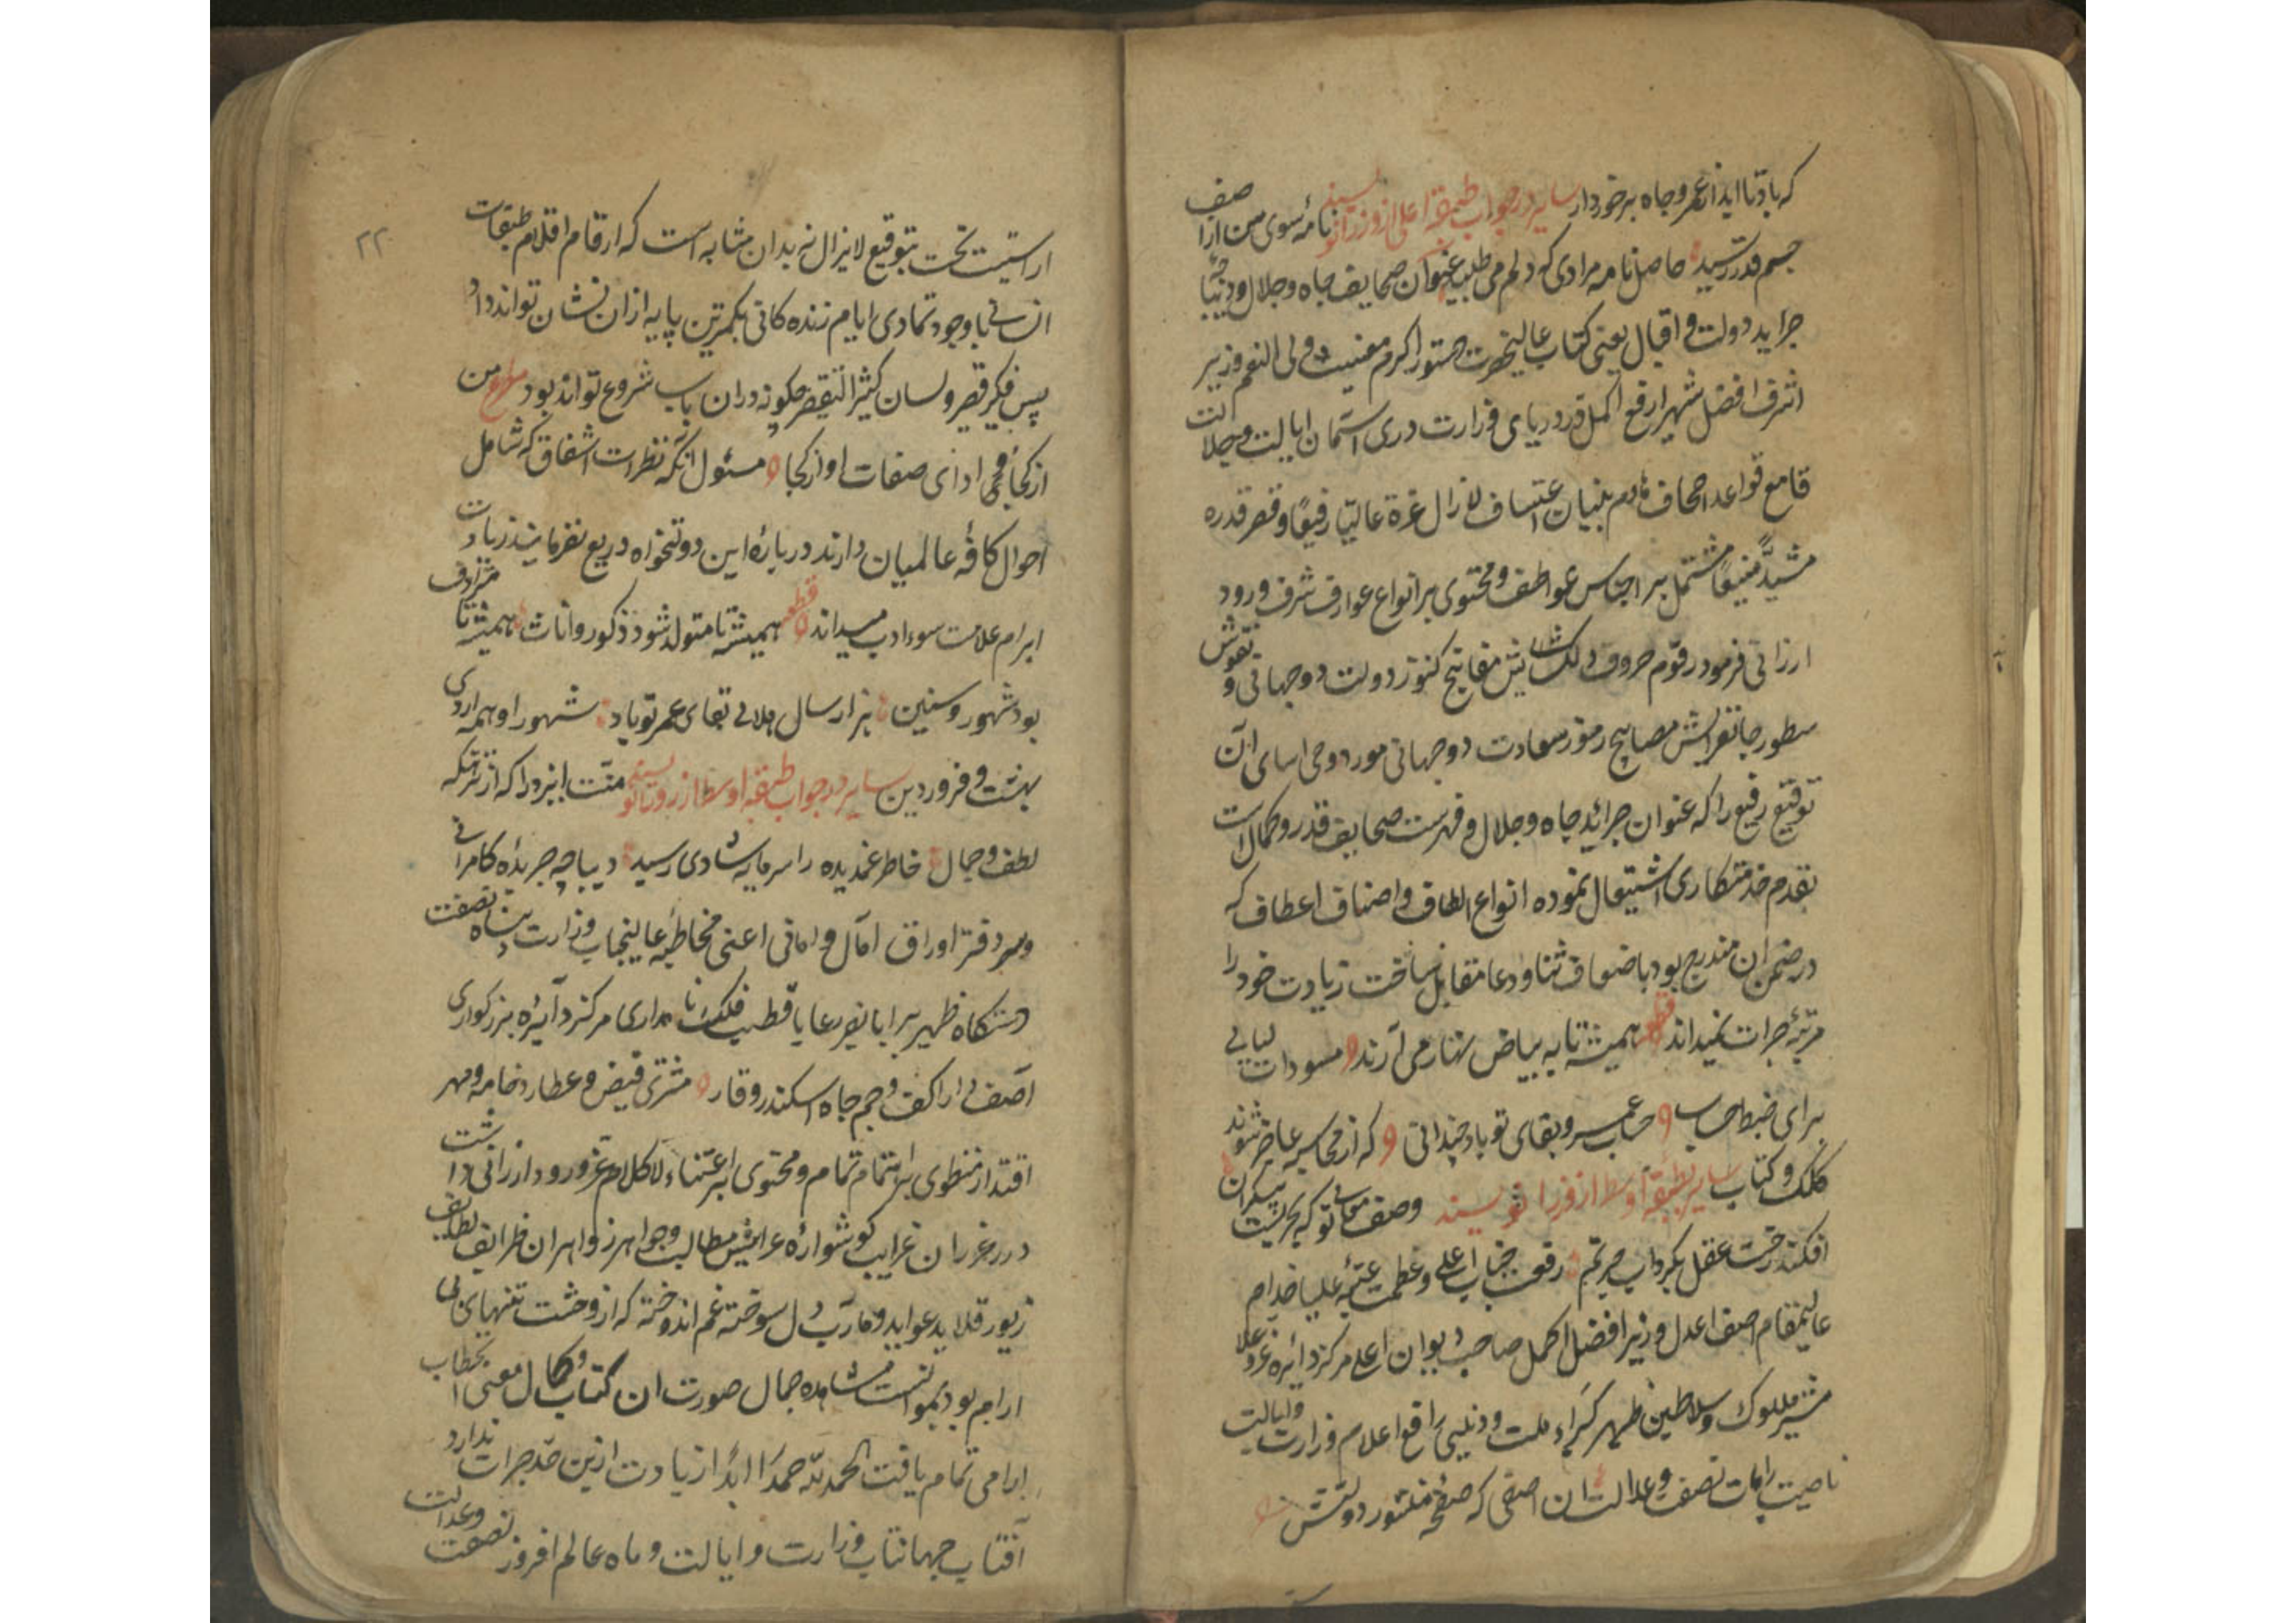 که باد تا ابد از عمر و جاه برخوردار سایر در جواب طبقه اعلی از وزرا نویسند نامهٔ سوی من از آصف
جم قدر رسید حاصل نامه مرادی که دلم می طلبید عنوان صحایف جاه و جلال و دیباچهٔ
جراید دولت و اقبال یعنی کتاب عالیحضرت دستور اکرم ولی النعم وزیر
اشرف افضل شهیر ارفع اکمل در دریای وزارت دری آسمان ایالت و جلالت
قامع قواعد اجحاف هادم بنیان اعتساف لازال غرة عالیا رفیعا و قصر قدره
مشیدا منیفا مشتمل بر اجناس عواطف و محتوی بر انواع عوارف شرف ورود
ارزانی فرمود رقوم حروف دلگشایش مفاتیح کنوز دولت دو جهانی و نقوش
سطور جانفزایش مصابیح رموز سعادت دو جهانی مورد وحی اسای آن
توقیع رفیع را که عنوان جرائد جاه و جلال و فهرست صحایف قدر و کمال است
بقدم خدمتکاری اشتغال نموده انواع الطاف و اصناف اعطاف که
در ضمن ان مندرج بود باضعاف ثنا و دعا مقابل ساخت زیادت خود را
مرتبهٔ جرات نمیداند قطعه همیشه تا به بیاض نهار می آرند مسودات لیالی
برای ضبط حساب حساب عمر و بقای تو باد چندانی که از محاسبه عاجز شوند
کلک و کتاب سایر بطبقه اوسط از وزرا نویسند وصف معالی تو که بحریست بیکران
افکند رخت عقل بگرداب حیرتم رفعت جناب اعلی و عظمت عتبهٔ علیا خدام
عالیمقام اصف اعدل وزیر افضل اکمل صاحب دیوان اعلی مرکز دائره عز و علا
مشیر ملوک و سلاطین ظهیر کبراء ملت و دین رافع اعلام وزارت و ایالت
ناصیت رایات نصفت و عدالت ان اصفی که صفحهٔ منشور دولتش
۲۲
اراستیت تخت بتوقیع لایزال نه بدان مشابه است که ارقام اقلام طبقات
انسانی با وجود تمادی ایام زنده کانی بکمترین پایه از ان نشان تواند داد
پس فکر قصیر و لسان کثیر التقصیر چکونه دران باب شروع تواند بود مصراع من
از کجا و ادای صفات او از کجا مسئول انکه نظرات اشفاق که شامل
احوال کافهٔ عالمیان دارند دربارهٔ این دولتخواه دریغ نفرمایند زیادت
ابرام علامت سوء ادب میداند قطعه همیشه تا متولد شود ذکور و اناث همیشه تا مترادف
بود شهور و سنین هزار سال جلالی بقای عمر تو باد شهور او همه اردی
بهشت و فروردین سایر در جواب طبقه اوسط از وزرا نویسند منت ایزد را که از نزهتکه
لطف و جمال خاطر غمدیده را سرمایه شادی رسید دیباچهٔ جریدهٔ کامرانی
و سر دفتر اوراق آمال و امانی اعنی مخاطبهٔ عالیجناب وزارت پناه نصفت
دستکاه ظهیر برایا نصیر رعایا قطب فلک نامداری مرکز دائره بزرکواری
آصف جم جاه اسکندر وقار مشتری فیض و عطارد خامه و مهر
اقتدار منطوی بر اهتمام تمام و محتوی بر اعتناء لاکلام عز ورود ارزانی داشت
درر غرر ان غرایب کوشوارهٔ عرایس مطالب و جواهر زواهر ان ظرایف لطایف
زیور قلاید عواید و مآرب دل سوخته غم اندوخته که از وحشت تنهای بی
ارام بود بمشاهده جمال صورت ان کتاب و کمال معنی ا بخطاب
ارامی تمام یافت الحمد لله حمدا ابدا زیادت ازین حد جرات ندارد
آفتاب جهانتاب وزارت و ایالت و ماه عالم افروز نصفت و عدالت